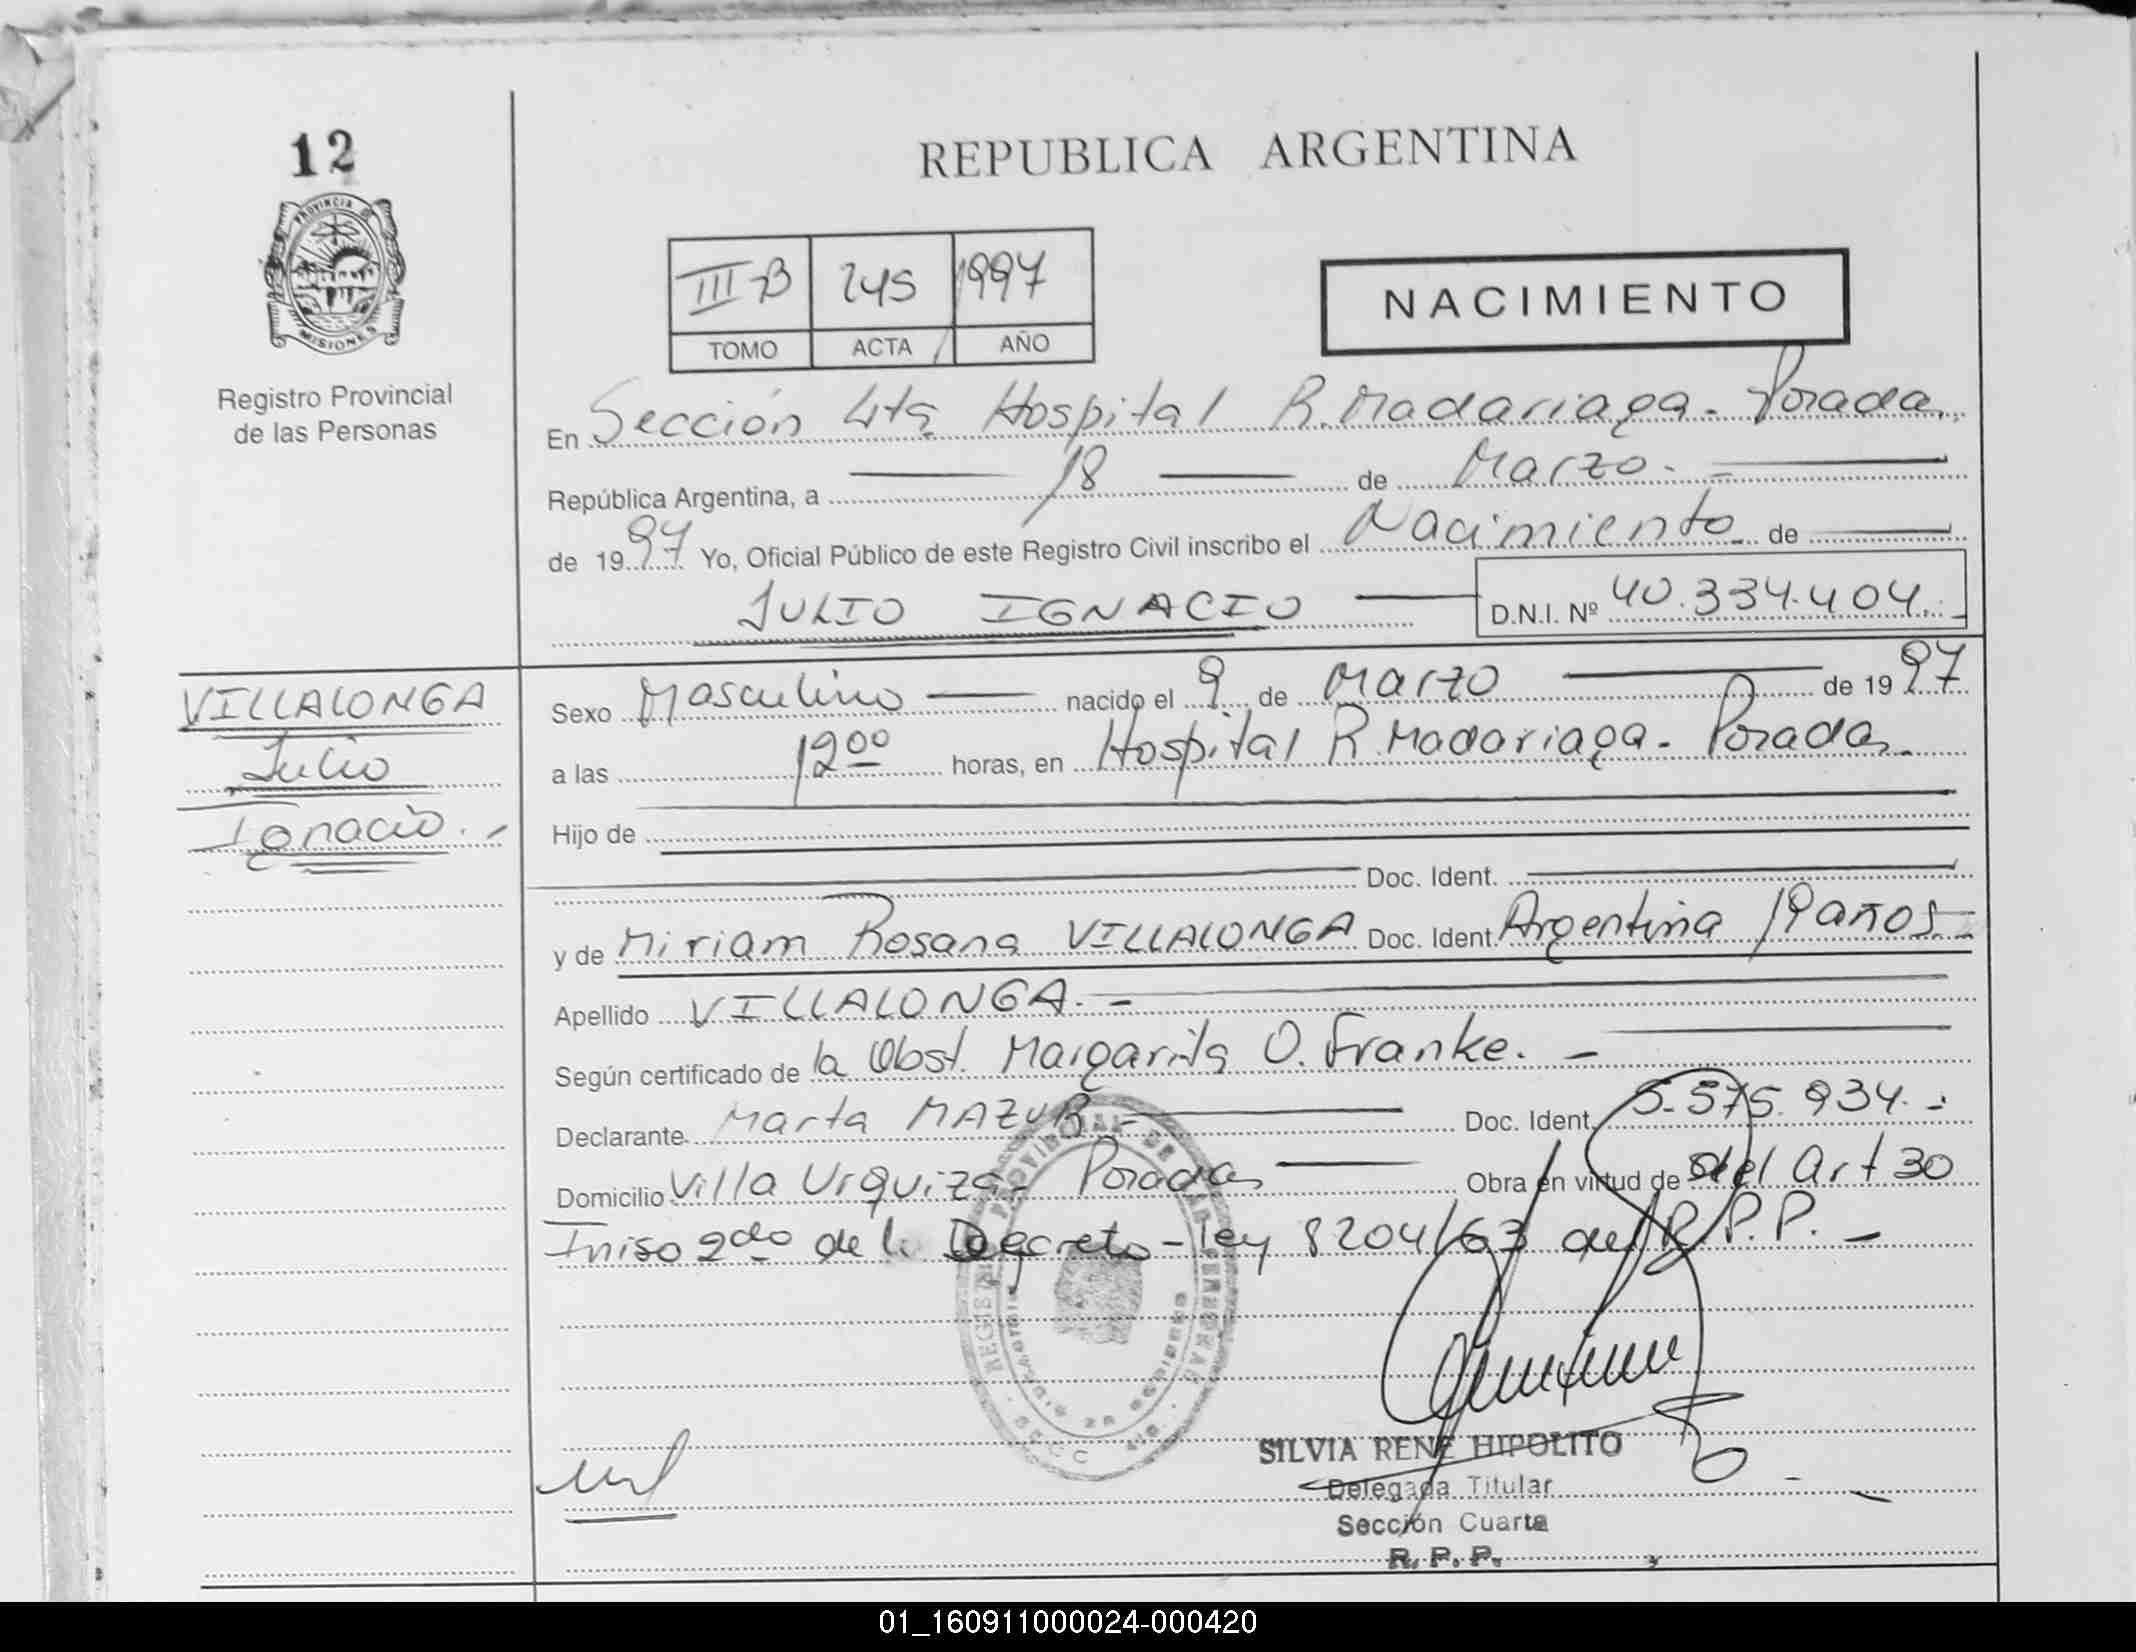 12
PROVINCIA DE
MISIONES
Registro Provincial
de las Personas
REPUBLICA ARGENTINA
III-B 245 1997
TOMO ACTA AÑO
NACIMIENTO
En Sección 4ta Hospital R. Madariaga - Posadas
República Argentina, a 18 de Marzo.-
de 1997 Yo, Oficial Público de este Registro Civil inscribo el Nacimiento de
JULIO IGNACIO D.N.I. Nº 40.334.404.-
VILLALONGA
Julio
Ignacio.-
Sexo Masculino nacido el 9 de Marzo de 1997
a las 12 00 horas, en Hospital R. Madariaga - Posadas
Hijo de
Doc. Ident.
y de Miriam Rosana VILLALONGA Doc. Ident. Argentina 19 años.-
Apellido VILLALONGA.-
Según certificado de la Obst. Margarita O. Franke.-
Declarante Marta MAZUR.- Doc. Ident. 5.575.934.-
Domicilio Villa Urquiza - Posadas Obra en virtud de del Art 30
Iniso 2do de la Decreto-ley 8204/63 del R.P.P.-
SILVIA RENE HIPOLITO
Delegada Titular
Sección Cuarta
R. P. P.
01_160911000024-000420